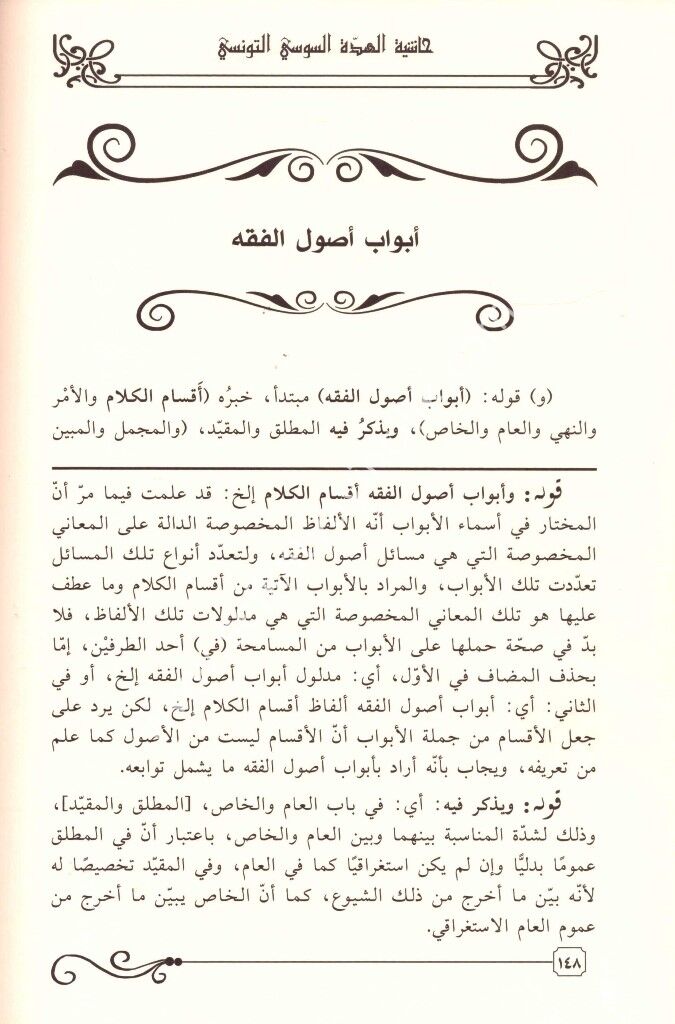 حاشية الهدّة السوسي التونسي
أبواب أصول الفقه
(و) قوله: (أبواب أصول الفقه) مبتدأ، خبرُه (أَقسام الكلام والأمْر
والنهي والعام والخاص)، ويذكرُ فيه المطلق والمقيّد، (والمجمل والمبين
قوله: وأبواب أصول الفقه أقسام الكلام إلخ: قد علمت فيما مرّ أنّ
المختار في أسماء الأبواب أنّه الألفاظ المخصوصة الدالة على المعاني
المخصوصة التي هي مسائل أصول الفقه، ولتعدّد أنواع تلك المسائل
تعدّدت تلك الأبواب، والمراد بالأبواب الآتية من أقسام الكلام وما عطف
عليها هو تلك المعاني المخصوصة التي هي مدلولات تلك الألفاظ، فلا
بدّ في صحّة حملها على الأبواب من المسامحة (في) أحد الطرفيْن، إمّا
بحذف المضاف في الأوّل، أي: مدلول أبواب أصول الفقه إلخ، أو في
الثاني: أي: أبواب أصول الفقه ألفاظ أقسام الكلام إلخ، لكن يرد على
جعل الأقسام من جملة الأبواب أنّ الأقسام ليست من الأصول كما علم
من تعريفه، ويجاب بأنّه أراد بأبواب أصول الفقه ما يشمل توابعه.
قوله: ويذكر فيه: أي: في باب العام والخاص، [المطلق والمقيّد]،
وذلك لشدّة المناسبة بينهما وبين العام والخاص، باعتبار أنّ في المطلق
عمومًا بدليًّا وإن لم يكن استغراقيًا كما في العام، وفي المقيّد تخصيصًا له
لأنّه بيّن ما أخرج من ذلك الشيوع، كما أنّ الخاص يبيّن ما أخرج من
عموم العام الاستغراقي.
١٤٨